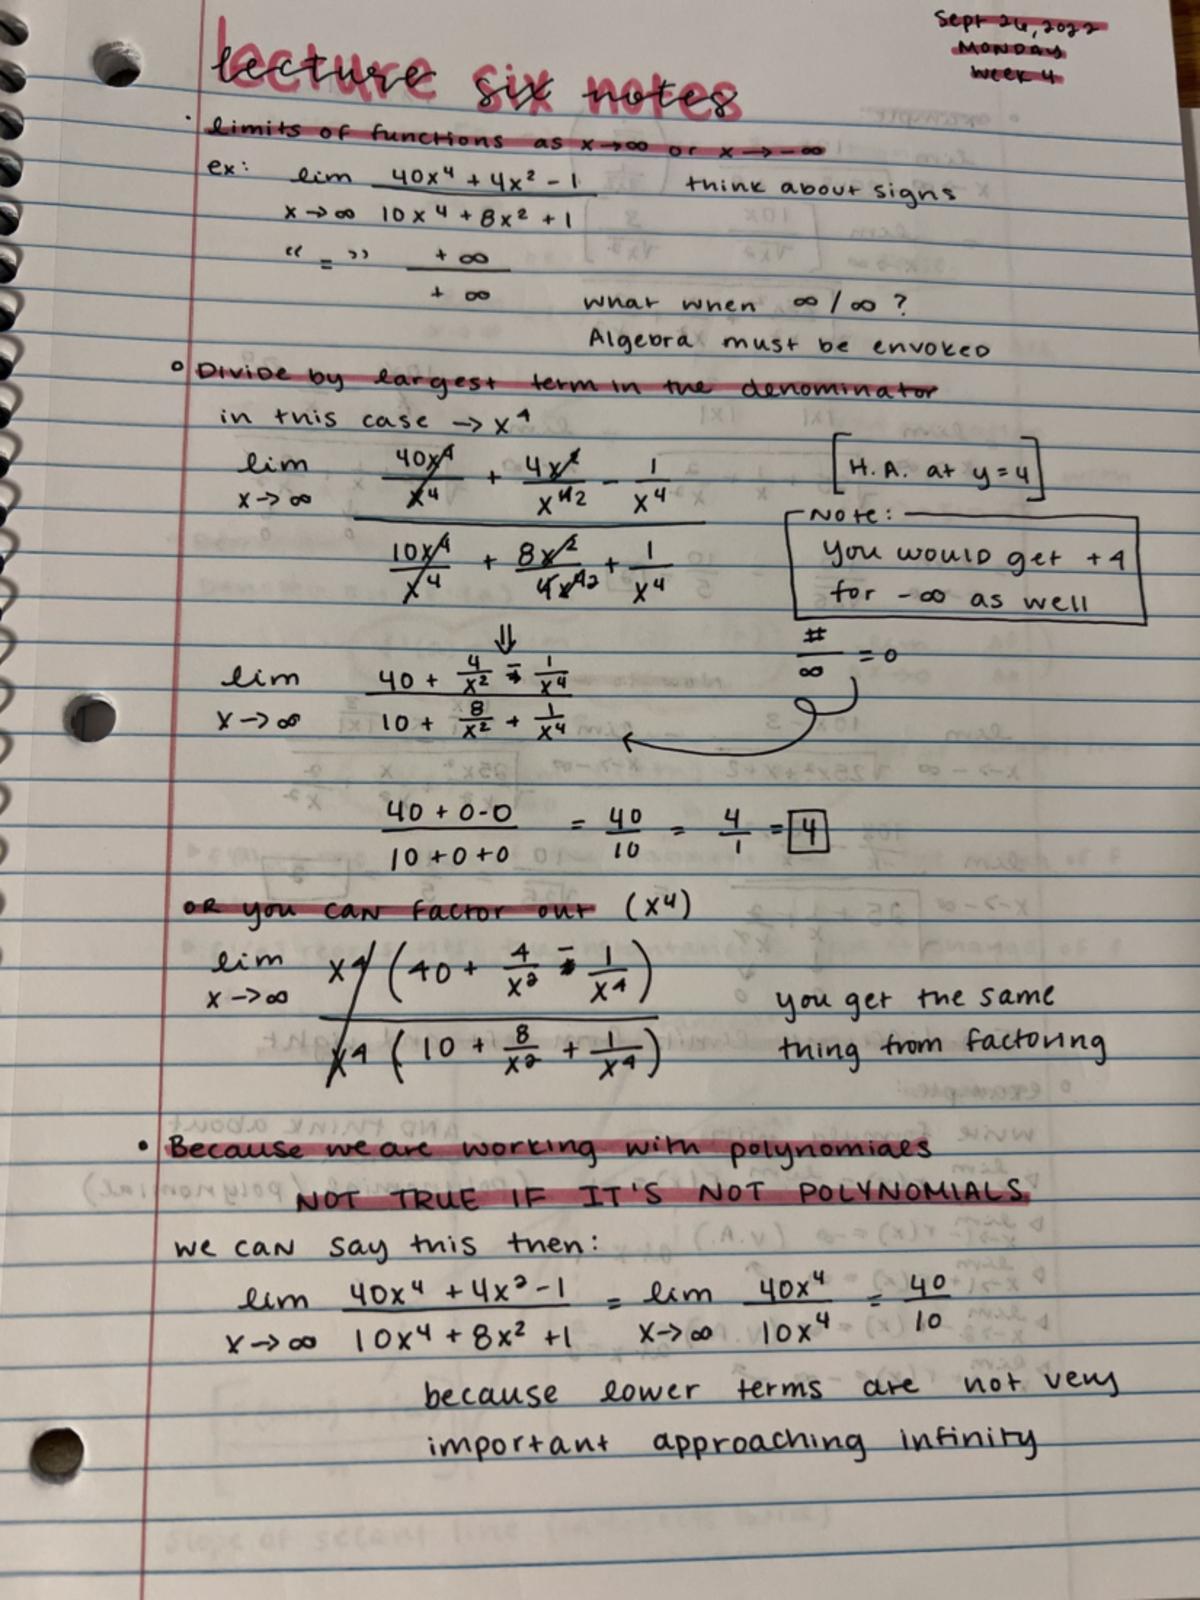 Sept 26, 2022
MONDAY
Week 4
lecture six notes
• limits of functions as x→∞ or x→-∞
ex: lim 40x⁴ + 4x² - 1 think about signs
x→∞ 10x⁴ + 8x² + 1
" = " +∞
+ ∞ what when ∞/∞ ?
Algebra must be envoked
° Divide by largest term in the denominator
in this case → x⁴
lim 40x⁴/x⁴ + 4x²/x⁴² - 1/x⁴ [H.A. at y=4]
x→∞
Note:
10x⁴/x⁴ + 8x²/4x⁴² + 1/x⁴ you would get +4
for -∞ as well
⇓ #/∞ = 0
lim 40 + 4/x² - 1/x⁴
x→∞ 10 + 8/x² + 1/x⁴
40 + 0 - 0 = 40/10 = 4/1 = 4
10 + 0 + 0
OR you can factor out (x⁴)
lim x⁴ (40 + 4/x² - 1/x⁴)
x→∞ you get the same
x⁴ (10 + 8/x² + 1/x⁴) thing from factoring
• Because we are working with polynomials
NOT TRUE IF IT'S NOT POLYNOMIALS
we can say this then:
lim 40x⁴ + 4x² - 1 = lim 40x⁴ = 40
x→∞ 10x⁴ + 8x² + 1 x→∞ 10x⁴ 10
because lower terms are not very
important approaching infinity